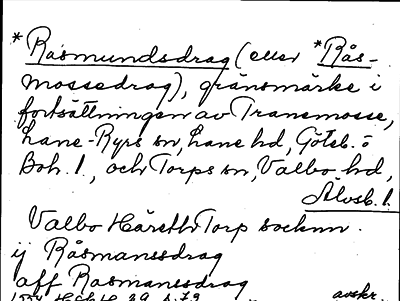 *Råsmundsdrag (eller *Rås-
mossedrag), gränsmärke i
fortsättningen av Tranemosse,
Lane-Ryrs sn, Lane hd, Göteb. o
Boh. l., och Torps sn, Valbo hd,
Älvsb. l.
Valbo Häreth Torp socknn
ij Råsmanssdrag
aff Rasmanssdrag
avskr.